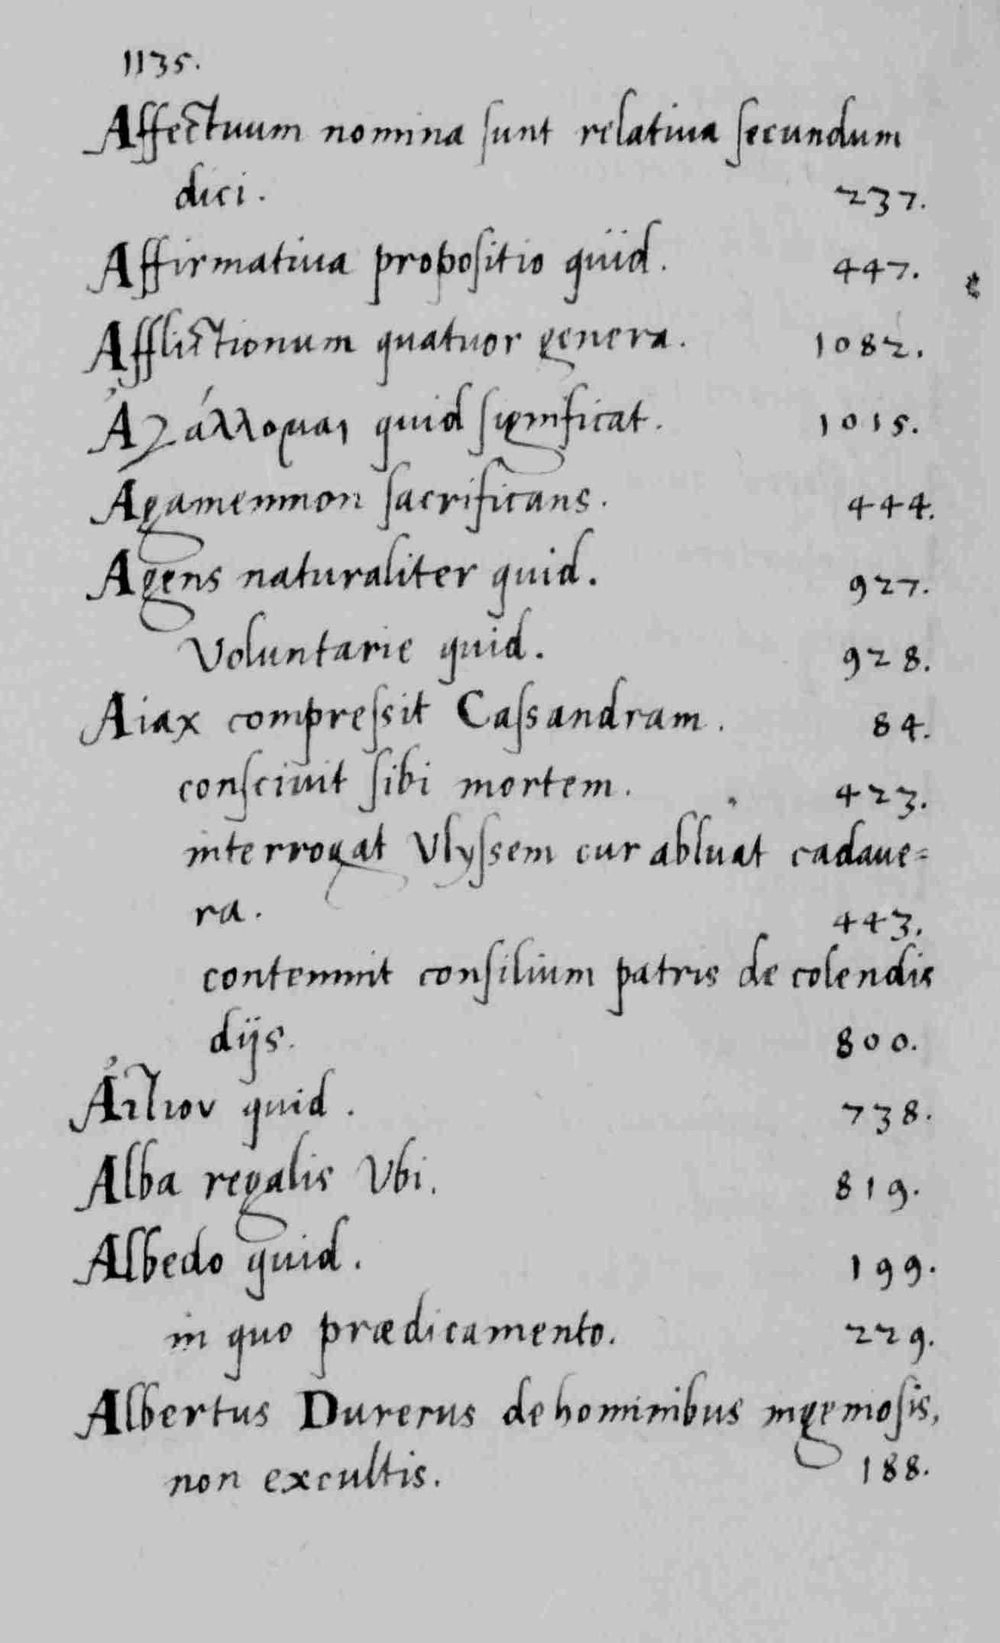 1135.
Affectuum nomina sunt relatiua secundum
dici. 237.
Affirmatiua propositio quid. 447.
Afflictionum quatuor genera. 1082.
Ἀγάλλομαι quid significat. 1015.
Agamemnon sacrificans. 444.
Agens naturaliter quid. 927.
Voluntarie quid. 928.
Aiax compressit Cassandram. 84.
consciuit sibi mortem. 423.
interrogat Vlyssem cur abluat cadaue=
ra. 443.
contemnit consilium patris de colendis
dijs. 800.
Ἄιτιον quid. 738.
Alba regalis Vbi. 819.
Albedo quid. 199.
in quo prædicamento. 229.
Albertus Durerus de hominibus ingeniosis,
non excultis. 188.